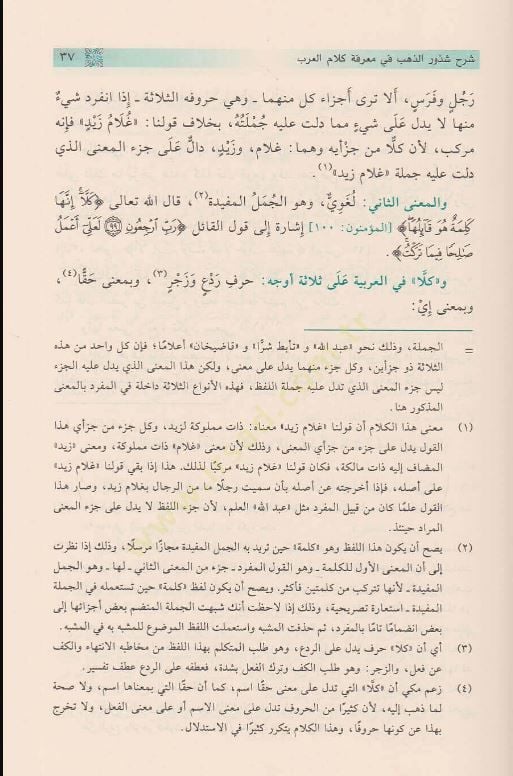 شرح شذور الذهب في معرفة كلام العرب ٣٧
رَجُلٍ وفَرَسٍ، أَلا ترى أجزاء كل منهما ـ وهي حروفه الثلاثة ـ إذا انفرد شيءٌ
منها لا يدل عَلَى شيءٍ مما دلت عليه جُمْلَتُهُ، بخلاف قولنا: «غُلَامُ زَيْدٍ» فإنه
مركب، لأن كلًّا من جزأيه وهما: غلام، وزَيْدٍ، دالٌّ عَلَى جزء المعنى الذي
دلت عليه جملة «غلام زيد»(١).
والمعنى الثاني: لُغَوِيٌّ، وهو الجُمَلُ المفيدة(٢)، قال الله تعالى ﴿كَلَّا إِنَّهَا
كَلِمَةٌ هُوَ قَائِلُهَا﴾ [المؤمنون: ١٠٠] إشارة إلى قول القائل ﴿رَبِّ ارْجِعُونِ ﴿٩٩﴾ لَعَلِّي أَعْمَلُ
صَالِحًا فِيمَا تَرَكْتُ﴾.
و«كلَّا» في العربية عَلَى ثلاثة أوجه: حرفِ رَدْعٍ وَزَجْرٍ(٣)، وبمعنى حَقًّا(٤)،
وبمعنى إيْ:
= الجملة، وذلك نحو «عبد الله» و «تأبط شرًّا» و «قاضيخان» أعلامًا؛ فإن كل واحد من هذه
الثلاثة ذو جزأين، وكل جزء منهما يدل على معنى، ولكن هذا المعنى الذي يدل عليه الجزء
ليس جزء المعنى الذي تدل عليه جملة اللفظ، فهذه الأنواع الثلاثة داخلة في المفرد بالمعنى
المذكور هنا.
(١) معنى هذا الكلام أن قولنا «غلام زيد» معناه: ذات مملوكة لزيد، وكل جزء من جزأي هذا
القول يدل على جزء من جزأي المعنى، وذلك لأن معنى «غلام» ذات مملوكة، ومعنى «زيد»
المضاف إليه ذات مالكة، فكان قولنا «غلام زيد» مركبًا لذلك. هذا إذا بقي قولنا «غلام زيد»
على أصله، فإذا أخرجته عن أصله بأن سميت رجلًا ما من الرجال بغلام زيد، وصار هذا
القول علمًا كان من قبيل المفرد مثل «عبد الله» العلم، لأن جزء اللفظ لا يدل على جزء المعنى
المراد حينئذ.
(٢) يصح أن يكون هذا اللفظ وهو «كلمة» حين تريد به الجمل المفيدة مجازًا مرسلًا، وذلك إذا نظرت
إلى أن المعنى الأول للكلمة ـ وهو القول المفرد ـ جزء من المعنى الثاني ـ لها ـ وهو الجمل
المفيدة ـ لأنها تتركب من كلمتين فأكثر. ويصح أن يكون لفظ «كلمة» حين تستعمله في الجملة
المفيدة ـ استعارة تصريحية، وذلك إذا لاحظت أنك شبهت الجملة المنضم بعض أجزائها إلى
بعض انضمامًا تامًا بالمفرد، ثم حذفت المشبه واستعملت اللفظ الموضوع للمشبه به في المشبه.
(٣) أي أن «كلا» حرف يدل على الردع، وهو طلب المتكلم بهذا اللفظ من مخاطبه الانتهاء والكف
عن فعل، والزجر: وهو طلب الكف وترك الفعل بشدة، فعطفه على الردع عطف تفسير.
(٤) زعم مكي أن «كلَّا» التي تدل على معنى حقًا اسم، كما أن حقًا التي بمعناها اسم، ولا صحة
لما ذهب إليه، لأن كثيرًا من الحروف تدل على معنى الاسم أو على معنى الفعل، ولا تخرج
بهذا عن كونها حروفًا، وهذا الكلام يتكرر كثيرًا في الاستدلال.